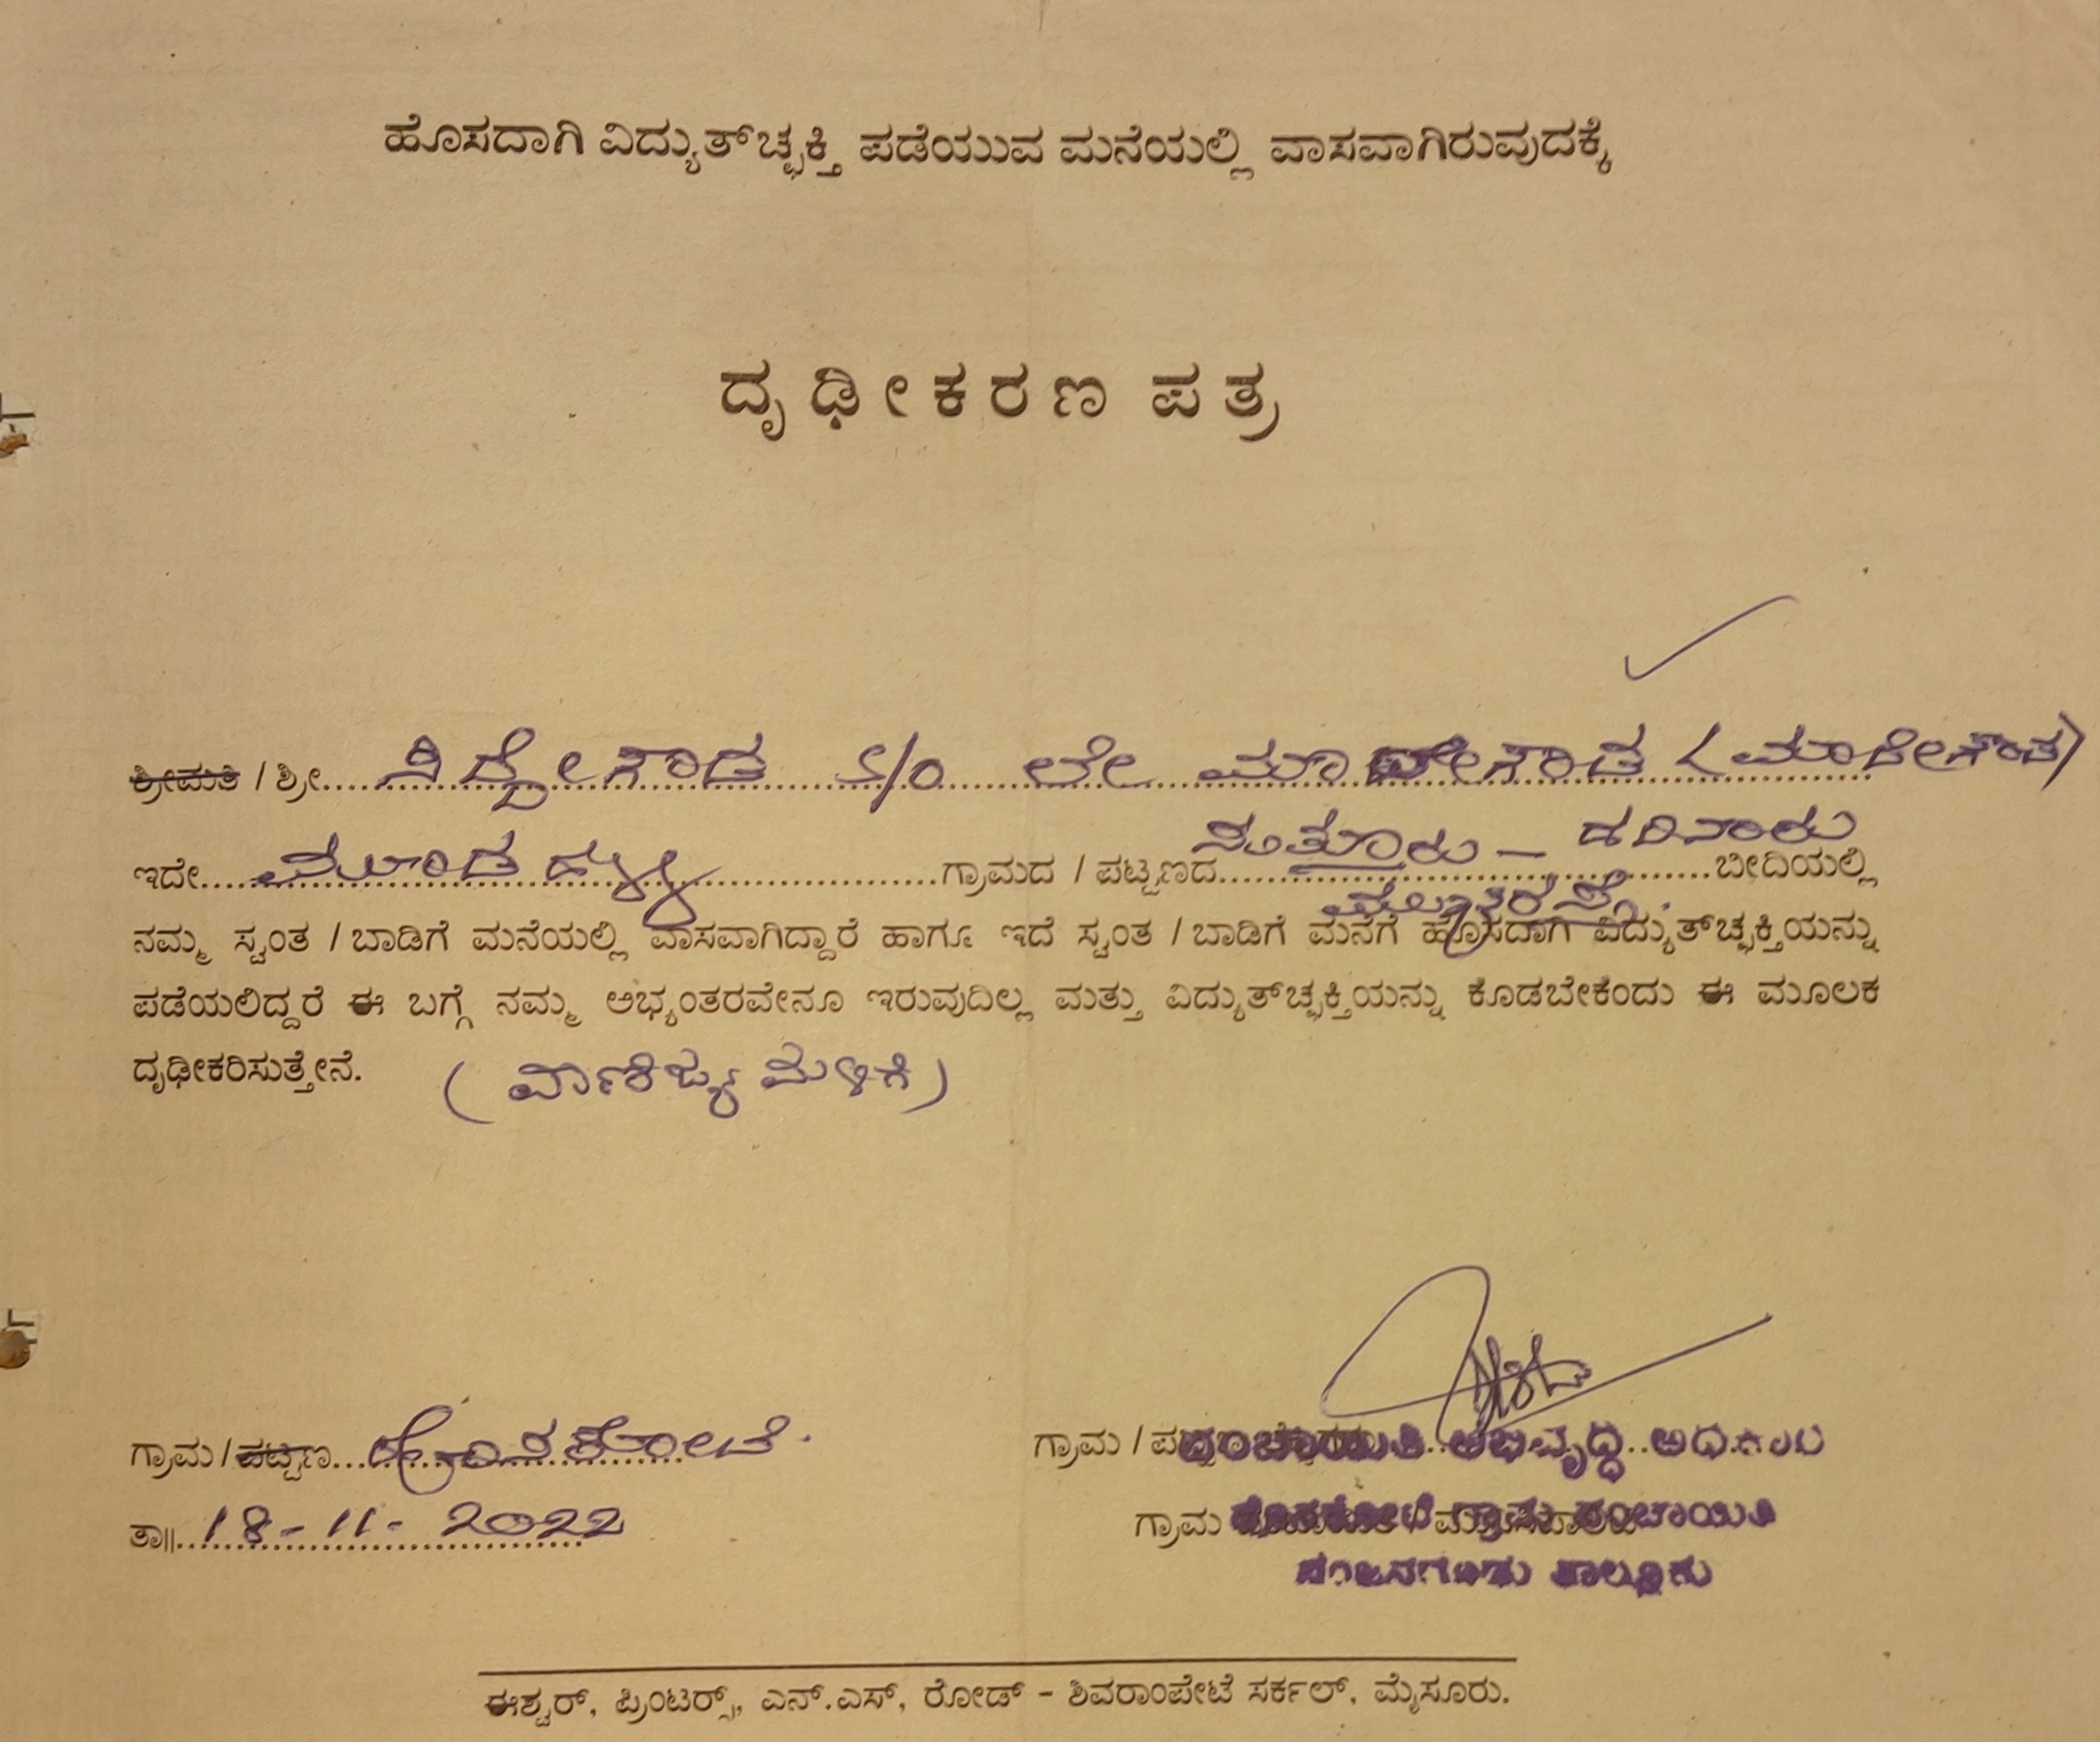 ಹೊಸದಾಗಿ ವಿದ್ಯುತ್‌ಚ್ಛಕ್ತಿ ಪಡೆಯುವ ಮನೆಯಲ್ಲಿ ವಾಸವಾಗಿರುವುದಕ್ಕೆ
ದೃಢೀಕರಣ ಪತ್ರ
ಶ್ರೀಮತಿ / ಶ್ರೀ... ಸಿದ್ದೇಗೌಡ S/o ಲೇ ಮಾದೇಗೌಡ (ಮಾರೇಗೌಡ)
ಸುತ್ತೂರು - ಹದಿನಾರು
ಇದೇ... ಗ್ರಾಮದ / ಪಟ್ಟಣದ... ಬೀದಿಯಲ್ಲಿ
ಮುಖ್ಯರಸ್ತೆ.
ನಮ್ಮ ಸ್ವಂತ / ಬಾಡಿಗೆ ಮನೆಯಲ್ಲಿ ವಾಸವಾಗಿದ್ದಾರೆ ಹಾಗೂ ಇದೆ ಸ್ವಂತ / ಬಾಡಿಗೆ ಮನೆಗೆ ಹೊಸದಾಗಿ ವಿದ್ಯುತ್‌ಚ್ಛಕ್ತಿಯನ್ನು
ಪಡೆಯಲಿದ್ದರೆ ಈ ಬಗ್ಗೆ ನಮ್ಮ ಅಭ್ಯಂತರವೇನೂ ಇರುವುದಿಲ್ಲ ಮತ್ತು ವಿದ್ಯುತ್‌ಚ್ಛಕ್ತಿಯನ್ನು ಕೊಡಬೇಕೆಂದು ಈ ಮೂಲಕ
ದೃಢೀಕರಿಸುತ್ತೇನೆ. (ವಾಣಿಜ್ಯ ಮಳಿಗೆ)
ಗ್ರಾಮ / ಪಟ್ಟಣ... ಹೊಸಕೋಟೆ. ಗ್ರಾಮ / ಪಂಚಾಯಿತಿ ಅಭಿವೃದ್ಧಿ ಅಧಿಕಾರಿ
ತಾ||.. 18-11-2022 ಗ್ರಾಮ ಹೊಸಕೋಟೆ ಗ್ರಾಮ ಪಂಚಾಯಿತಿ
ನಂಜನಗೂಡು ತಾಲ್ಲೂಕು
ಈಶ್ವರ್, ಪ್ರಿಂಟರ್ಸ್, ಎನ್.ಎಸ್, ರೋಡ್ - ಶಿವರಾಂಪೇಟೆ ಸರ್ಕಲ್, ಮೈಸೂರು.